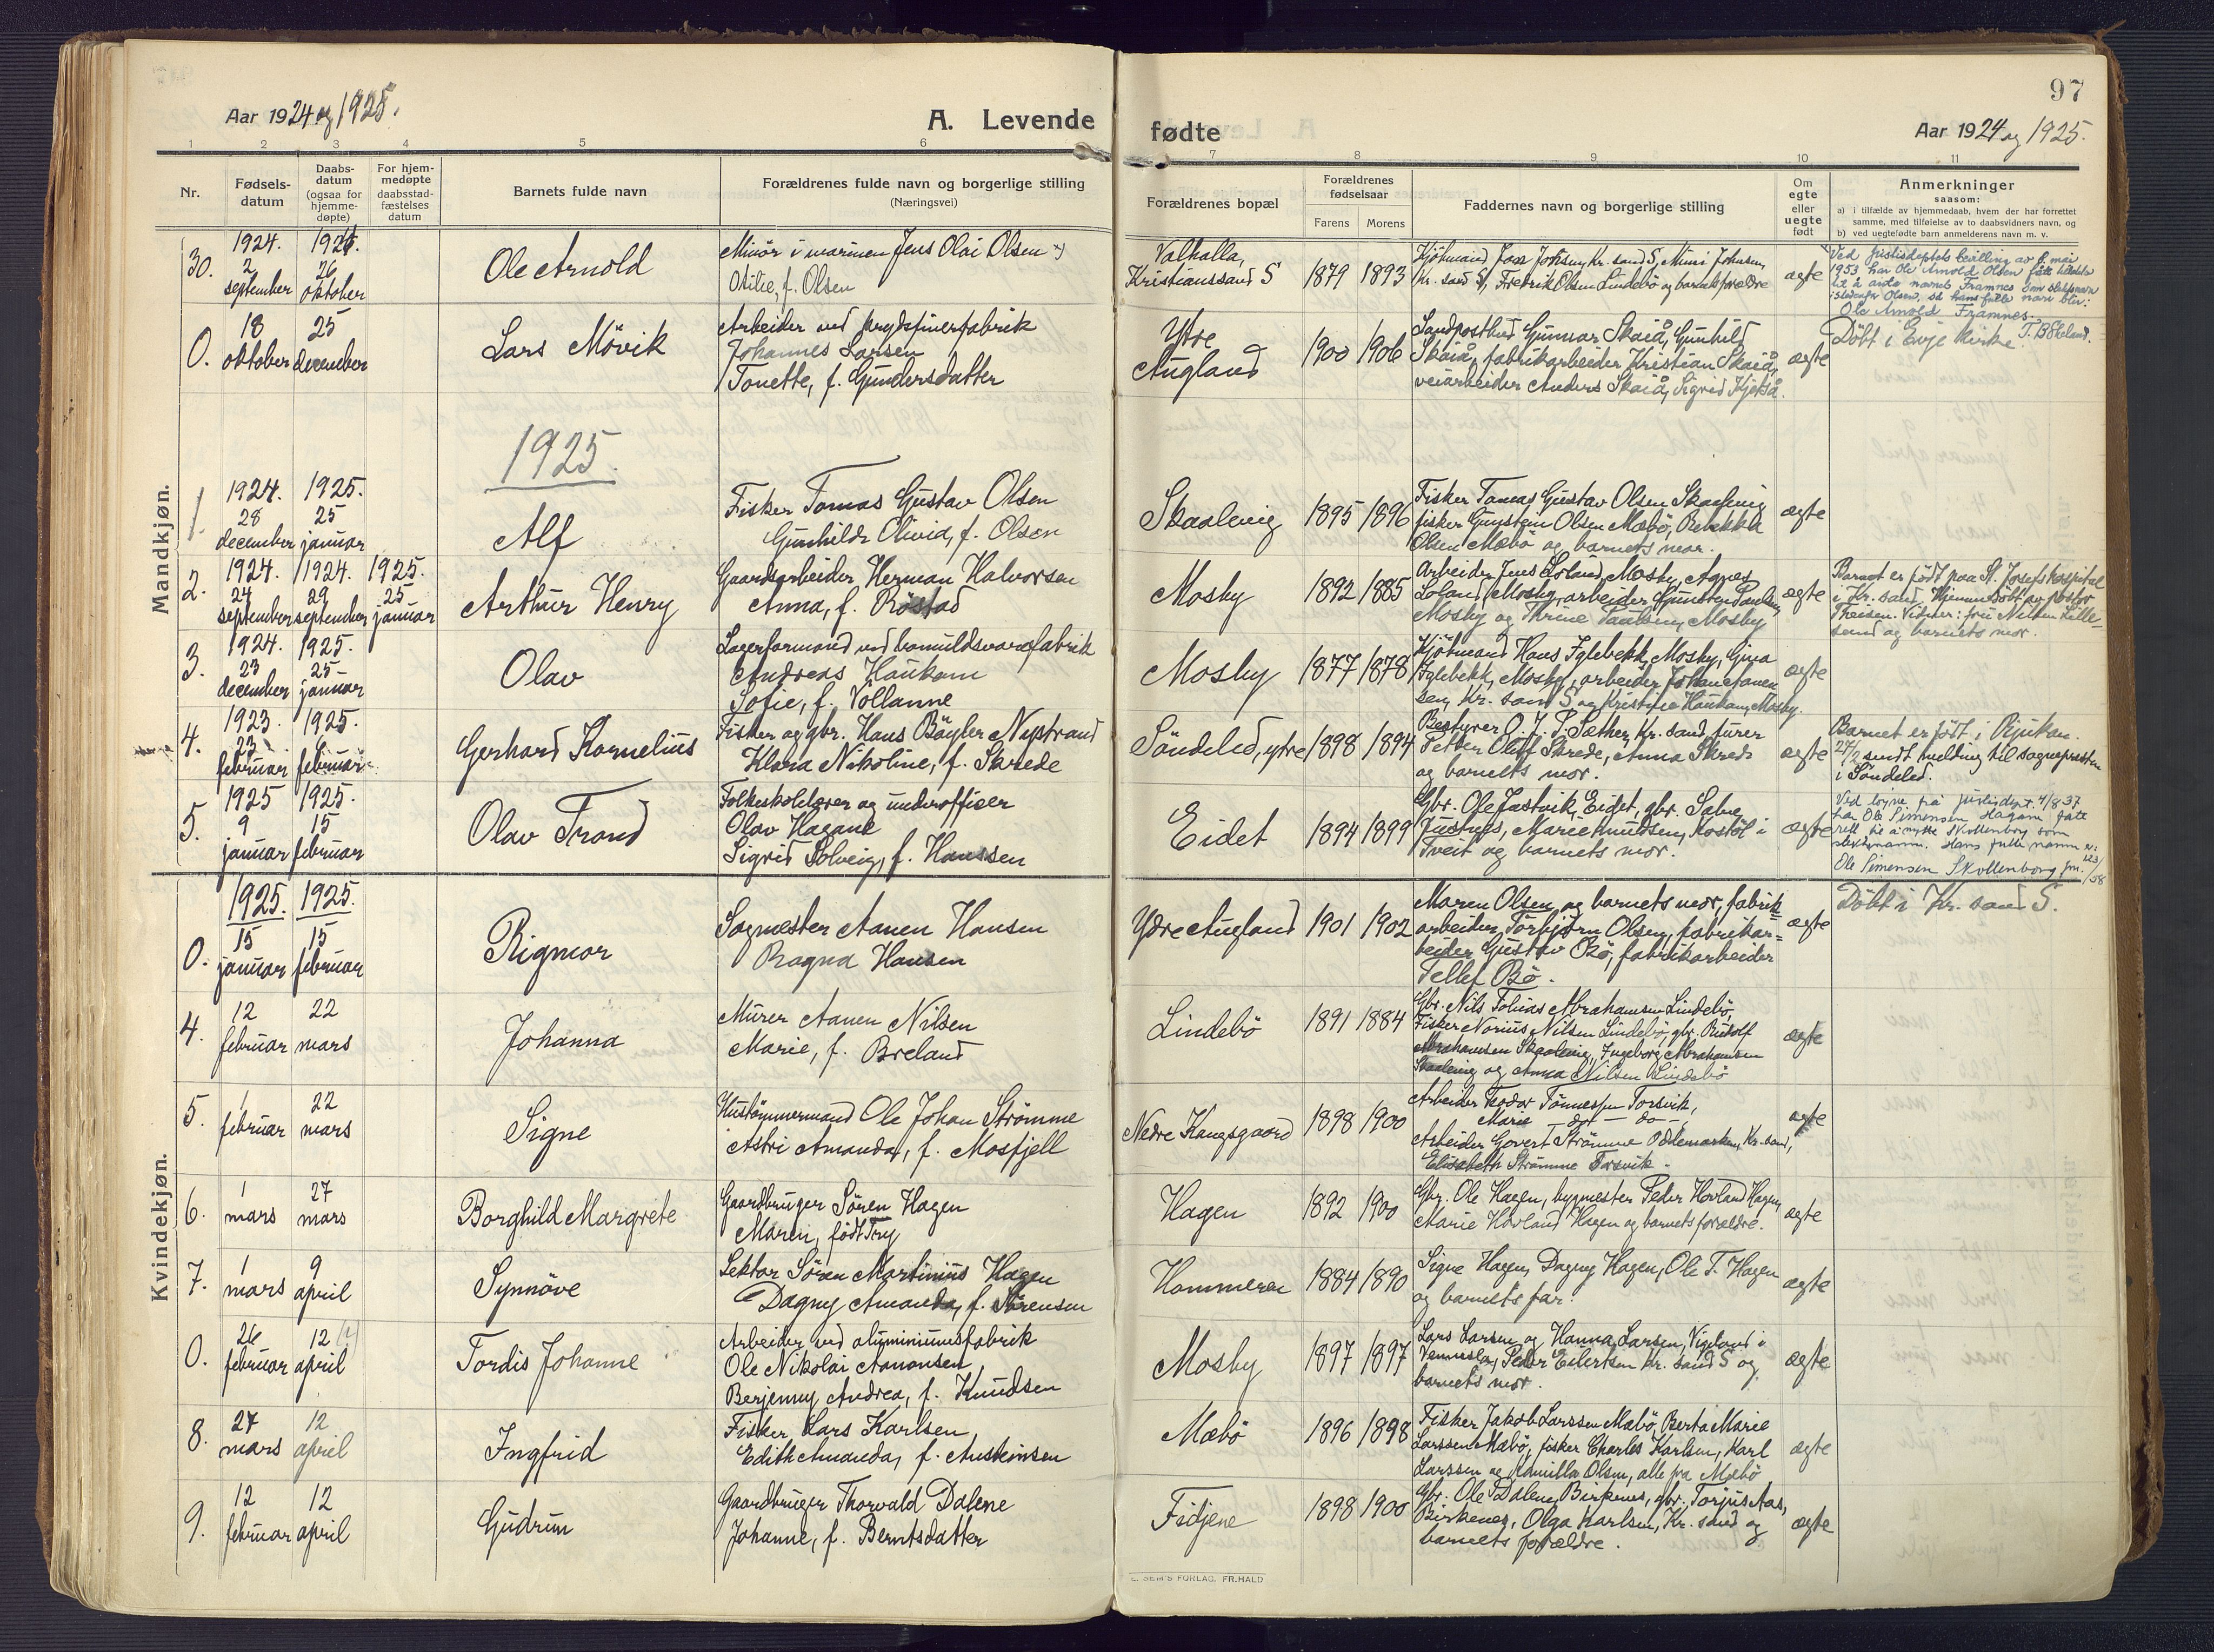 97
Aar 1924 og 1925.
A. Levende
fødte
Aar 1924 og 1925.
1 2 3 4 5 6
7 8 9 10 11
Nr.
Fødsels-
datum
Daabs-
datum
(ogsaa for
hjemme-
døpte)
For hjem-
medøpte
daabsstad-
fæstelses
datum
Barnets fulde navn
Forældrenes fulde navn og borgerlige stilling
(Næringsvei)
Forældrenes bopæl
Forældrenes
fødselsaar
Farens Morens
Faddernes navn og borgerlige stilling
Om
egte
eller
uegte
født
Anmerkninger
saasom:
a) i tilfælde av hjemmedaab, hvem der har forrettet
samme, med tilføielse av to daabsvidners navn, og
b) ved uegtefødte barn anmelderens navn m. v.
Mandkjøn.
30.
1924.
2
september
1924.
26
oktober
Ole Arnold
Minör i marinen Jens Olai Olsen
Otilie, f. Olsen
Valhalla,
Kristianssand S
1879 1893
Kjöbmand Johnsen, Kr. sand S, Johnsen,
Kr. sand S, Fredrik Olsen Lindebö og barnets forældre
ægte
Ved Justisdeptets bevilling av 8. mai
1953 har Ole Arnold Olsen fått tillatelse
til å anta navnet Framnes som slektsnavn
istedenfor Olsen, så hans fulle navn blir:
Ole Arnold Framnes.
0.
18
oktober
25
december
Lars Mövik
Arbeider ved krydsfinerfabrik
Johannes Larsen
Tonette, f. Gundersdatter
Ytre
Augland
1900 1906
Landpostbud Gunnar Skaiå, Gunhild
Skaiå, fabrikarbeider Kristian Skaiå,
veiarbeider Anders Skaiå, Sigrid Kjetså.
ægte
Döbt i Evje kirke
1925.
1
1924.
28
december
1925.
25
januar
Alf
Fisker Tomas Gustav Olsen
Gunhilds Olivia, f. Olsen
Skaalevig
1895 1896
Fisker Tomas Gustav Olsen Skaalevig
fisker Guystein Olsen Mæbö, Rebekka
Olsen Mæbö og barnets mor.
ægte
2.
1924.
24
september
1924.
29
september
1925.
25
januar
Arthur Henry
Gaardsarbeider Herman Halvorsen
Anna, f. Röstad
Mosby
1892 1885
Arbeider Jens Loland, Mosby, Agnes
Loland, Mosby, arbeider Gunsten Paulsen,
Mosby og Thrine Paulsen, Mosby
ægte
Barnet er født paa St. Josefs hospital
i Kr. sand. Hjemmedöbt av pastor
Theisen. Vidner: fru Nilsen Lille-
sand og barnets mor.
3.
1924.
23
december
1925.
25
januar
Olav
Lagerformand ved bomuldsvarefabrik
Andreas Haukom
Sofie, f. Vollanne
Mosby
1877 1878
Kjöbmand Hans Iglebekk, Mosby, Gina
Iglebekk, Mosby, arbeider Johan Hansen
sen, Kr. sand S og Kristine Haukom, Mosby.
ægte
4.
1923.
23
februar
1925.
februar
Gerhard Kornelius
Fisker og gbr. Hans Böyler Nystrand
Klara Nikoline, f. Skrede
Söndeled, ytre
1898 1894
Bestyrer O. J. P. Sæther, Kr. sand, furer
Petter Oluf Skrede, Anna Skrede
og barnets mor.
ægte
Barnet er født i Rjukan.
27/2 sendt melding til sognepresten
i Söndeled.
5.
1925
9
januar
1925.
15
februar
Olav Trond
Folkeskolelærer og underofficer
Olav Hagane
Sigrid Solveig, f. Hanssen
Eidet
1894 1899
Gbr. Ole Justvik, Eidet, gbr. Salve
Justnes, Marie Knudsen, Kostöl i
Tveit og barnets mor.
ægte
Ved bgvn. frå justisdept. 4/8 37
har Ole Simensen Hagane fått
rett til å nytte Skollenborg som
slektsnamn. Hans fulle namn er:
Ole Simensen Skollenborg
Kvindekjøn.
0.
1925.
15
januar
1925.
15
februar
Rigmor
Sagmester Aanen Hansen
Ragna Hansen
Ydre Augland
1901 1902
Maren Olsen og barnets mor, fabrik-
arbeider Torbjörn Olsen, fabrikar-
beider Gustav Bö, fabrikarbeider
Tellef Bö.
ægte
Döbt i Kr. sand S.
4.
12
februar
22
mars
Johanna
Murer Aanen Nilsen
Marie, f. Breland
Lindebö
1891 1884
Gbr. Nils Tobias Abrahamsen Lindebö,
Fisker Norius Nilsen Lindebö, gbr. Rudolf
Abrahamsen Skaalevig, Ingeborg Abrahamsen
Skaalevig og Anna Nilsen Lindebö
ægte
5.
1
februar
22
mars
Signe
Hustömmermand Ole Johan Strömme
Astri Amanda, f. Mosfjell
Nedre Kongsgaard
1898 1900
Arbeider Teodor Tönnessen Torsvik,
Marie — do —,
Arbeider Govert Strömme Oddemarken, Kr. sand,
Elisabeth Strömme Torsvik.
ægte
6.
1
mars
27
mars
Borghild Margrete
Gaardbruger Sören Hagen
Maren, født Try
Hagen
1892 1900
Gbr. Ole Hagen, bygmester Peder Hovland Hagen,
Marie Hovland Hagen og barnets forældre.
ægte
7.
1
mars
9
april
Synnöve
Lektor Sören Martinius Hagen
Dagny Amanda, f. Sörensen
Hommeren
1884 1890
Signe Hagen, Dagny Hagen, Ole T. Hagen
og barnets far.
ægte
0.
26
februar
12
april
Tordis Johanne
Arbeider ved aluminiumsfabrik
Ole Nikolai Aanonsen
Berjenny Andrea, f. Knudsen
Mosby
1897 1897
Lars Larsen og Hanna Larsen, Vigeland i
Vennesla, Peder Eilertsen Kr. sand S og
barnets mor.
ægte
8.
27
mars
12
april
Ingfrid
Fisker Lars Karlsen
Edith Amanda, f. Auskinsen
Mæbö
1896 1898
Fisker Jakob Larssen Mæbö, Berta Marie
Larssen Mæbö, fisker Charles Karlsen, Karl
Larssen og Kamilla Olsen, alle fra Mæbö
ægte
9.
12
februar
12
april
Gudrun
Gaardbruger Thorvald Dalene
Johanne, f. Berntsdatter
Fidjene
1898 1900
Gbr. Ole Dalene, Birkenes, gbr. Torjus Aas,
Birkenes, Olga Karlsen, Kr. sand og
barnets forældre.
ægte
E. SEM'S FORLAG. FR.HALD